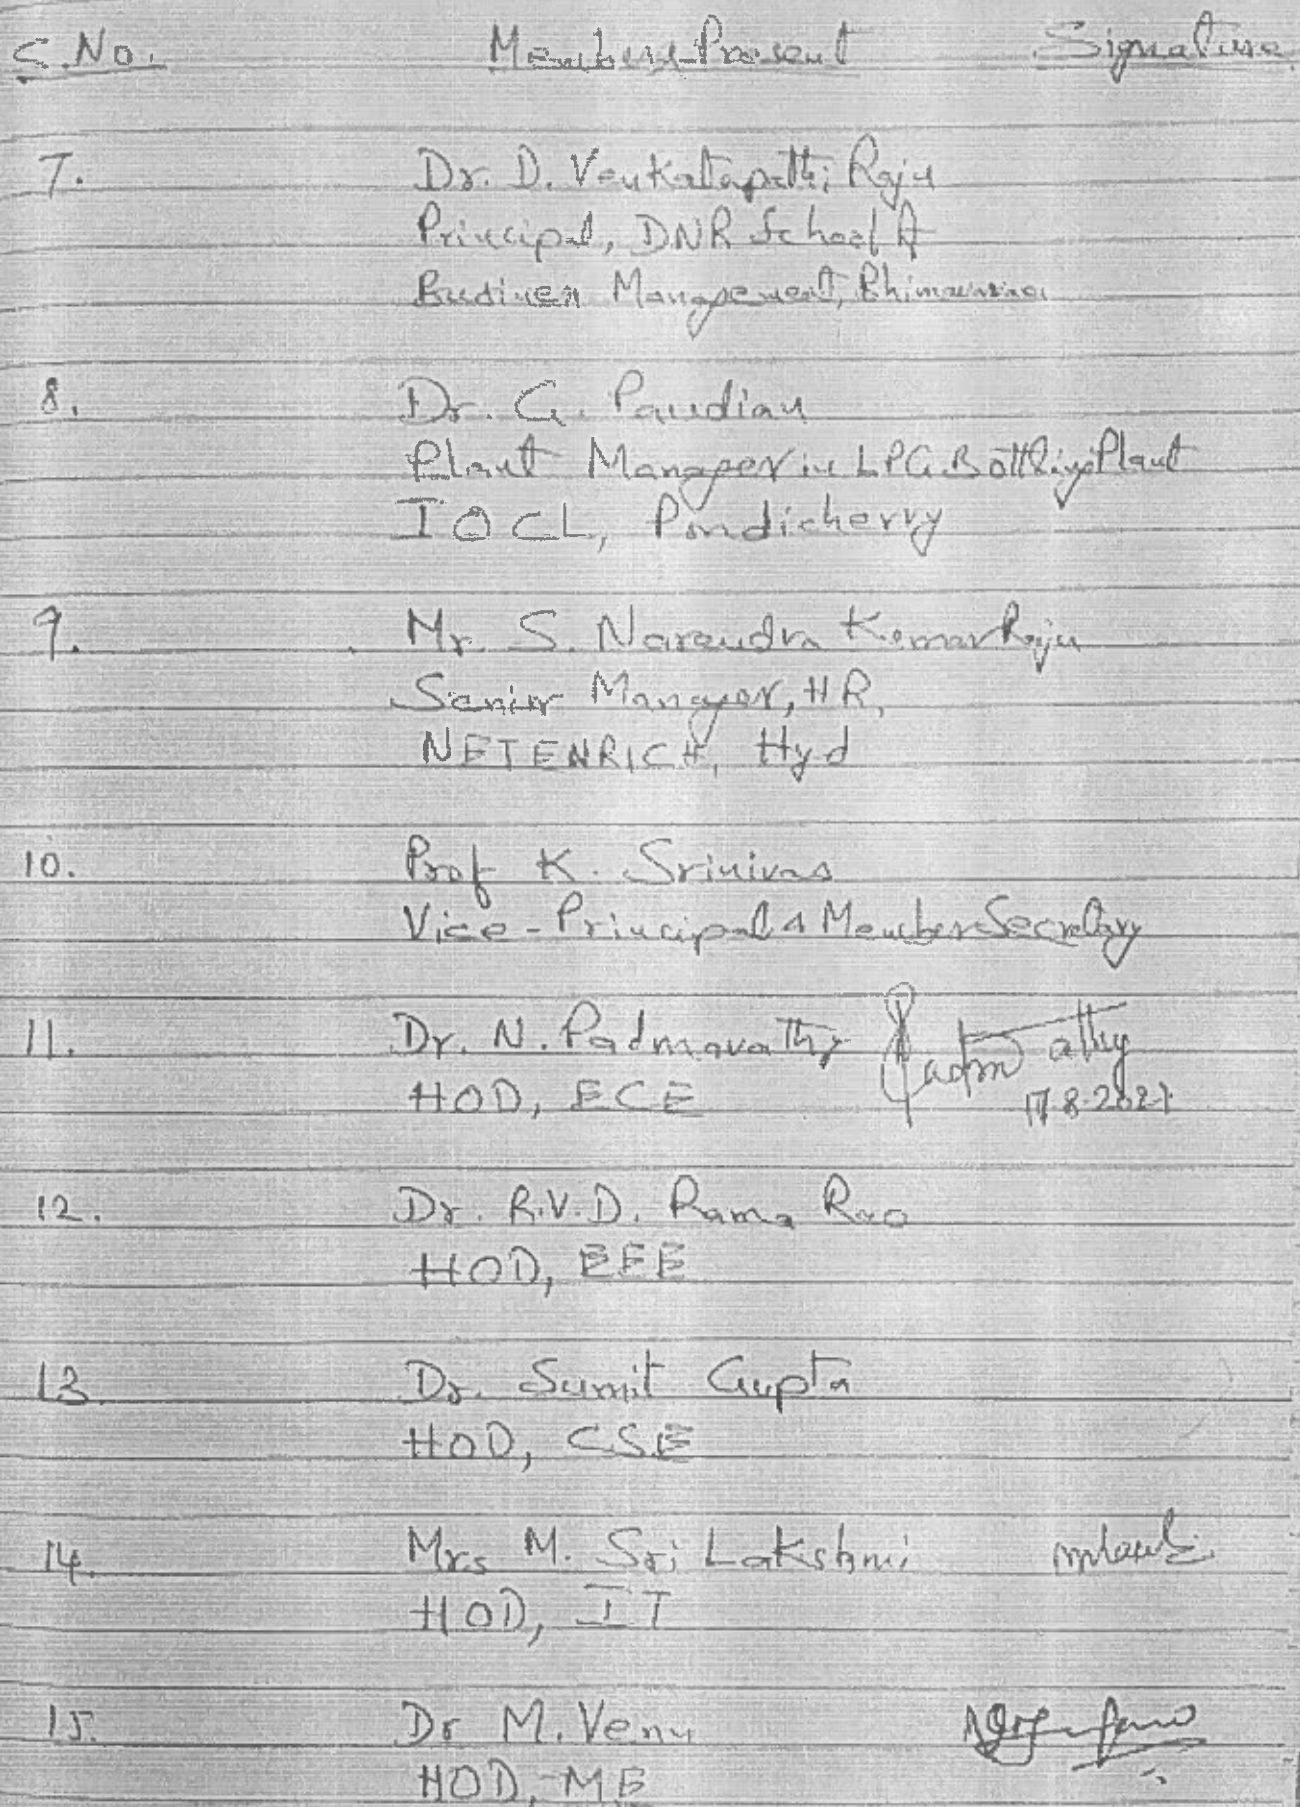 S.No. Members Present Signature
7. Dr. D. Venkatapathi Raju
Principal, DNR School of
Business Management, Bhimavaram
8. Dr. G. Pandian
Plant Manager in LPG Bottling Plant
IOCL, Pondicherry
9. Mr. S. Narendra Kumar Raju
Senior Manager, HR,
NETENRICH, Hyd
10. Prof K. Srinivas
Vice-Principal & Member Secretary
11. Dr. N. Padmavathy
HOD, ECE 17.8.2021
12. Dr. R.V.D. Rama Rao
HOD, EEE
13. Dr. Sumit Gupta
HOD, CSE
14. Mrs M. Sri Lakshmi
HOD, IT
15. Dr M. Venu
HOD, ME